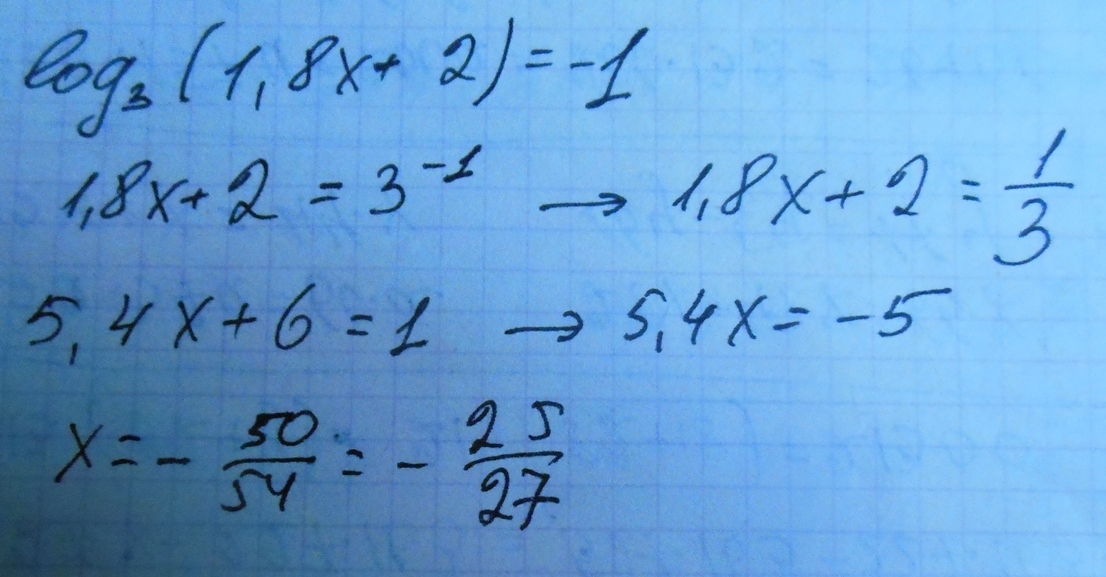 log₃(1,8x+2)=-1
1,8x+2=3⁻¹ → 1,8x+2=1/3
5,4x+6=1 → 5,4x=-5
x=-50/54=-25/27